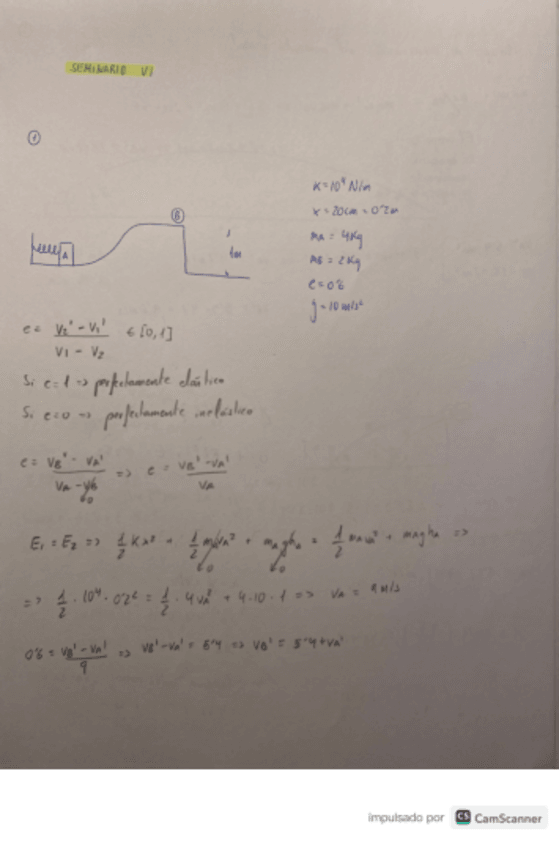 SEMINARIO VI
①
K=10⁴ N/m
x=20cm=0'2m
mA = 4Kg
B
1m
mB = 2Kg
A
e=0'6
g=10 m/s²
e = V2' - V1' / V1 - V2 ∈ [0,1]
Si e=1 => perfectamente elástico
Si e=0 => perfectamente inelástico
e = VB' - VA' / VA - VB 0 => e = VB' - VA' / VA
E1 = E2 => 1/2 K x² + 1/2 mA VA² 0 + mA g hA 0 = 1/2 mA VA² + mA g hA =>
=> 1/2 · 10⁴ · 0'2² = 1/2 · 4 VA² + 4·10·1 => VA = 9 m/s
0'6 = VB' - VA' / 9 => VB' - VA' = 5'4 => VB' = 5'4 + VA'
impulsado por CS CamScanner